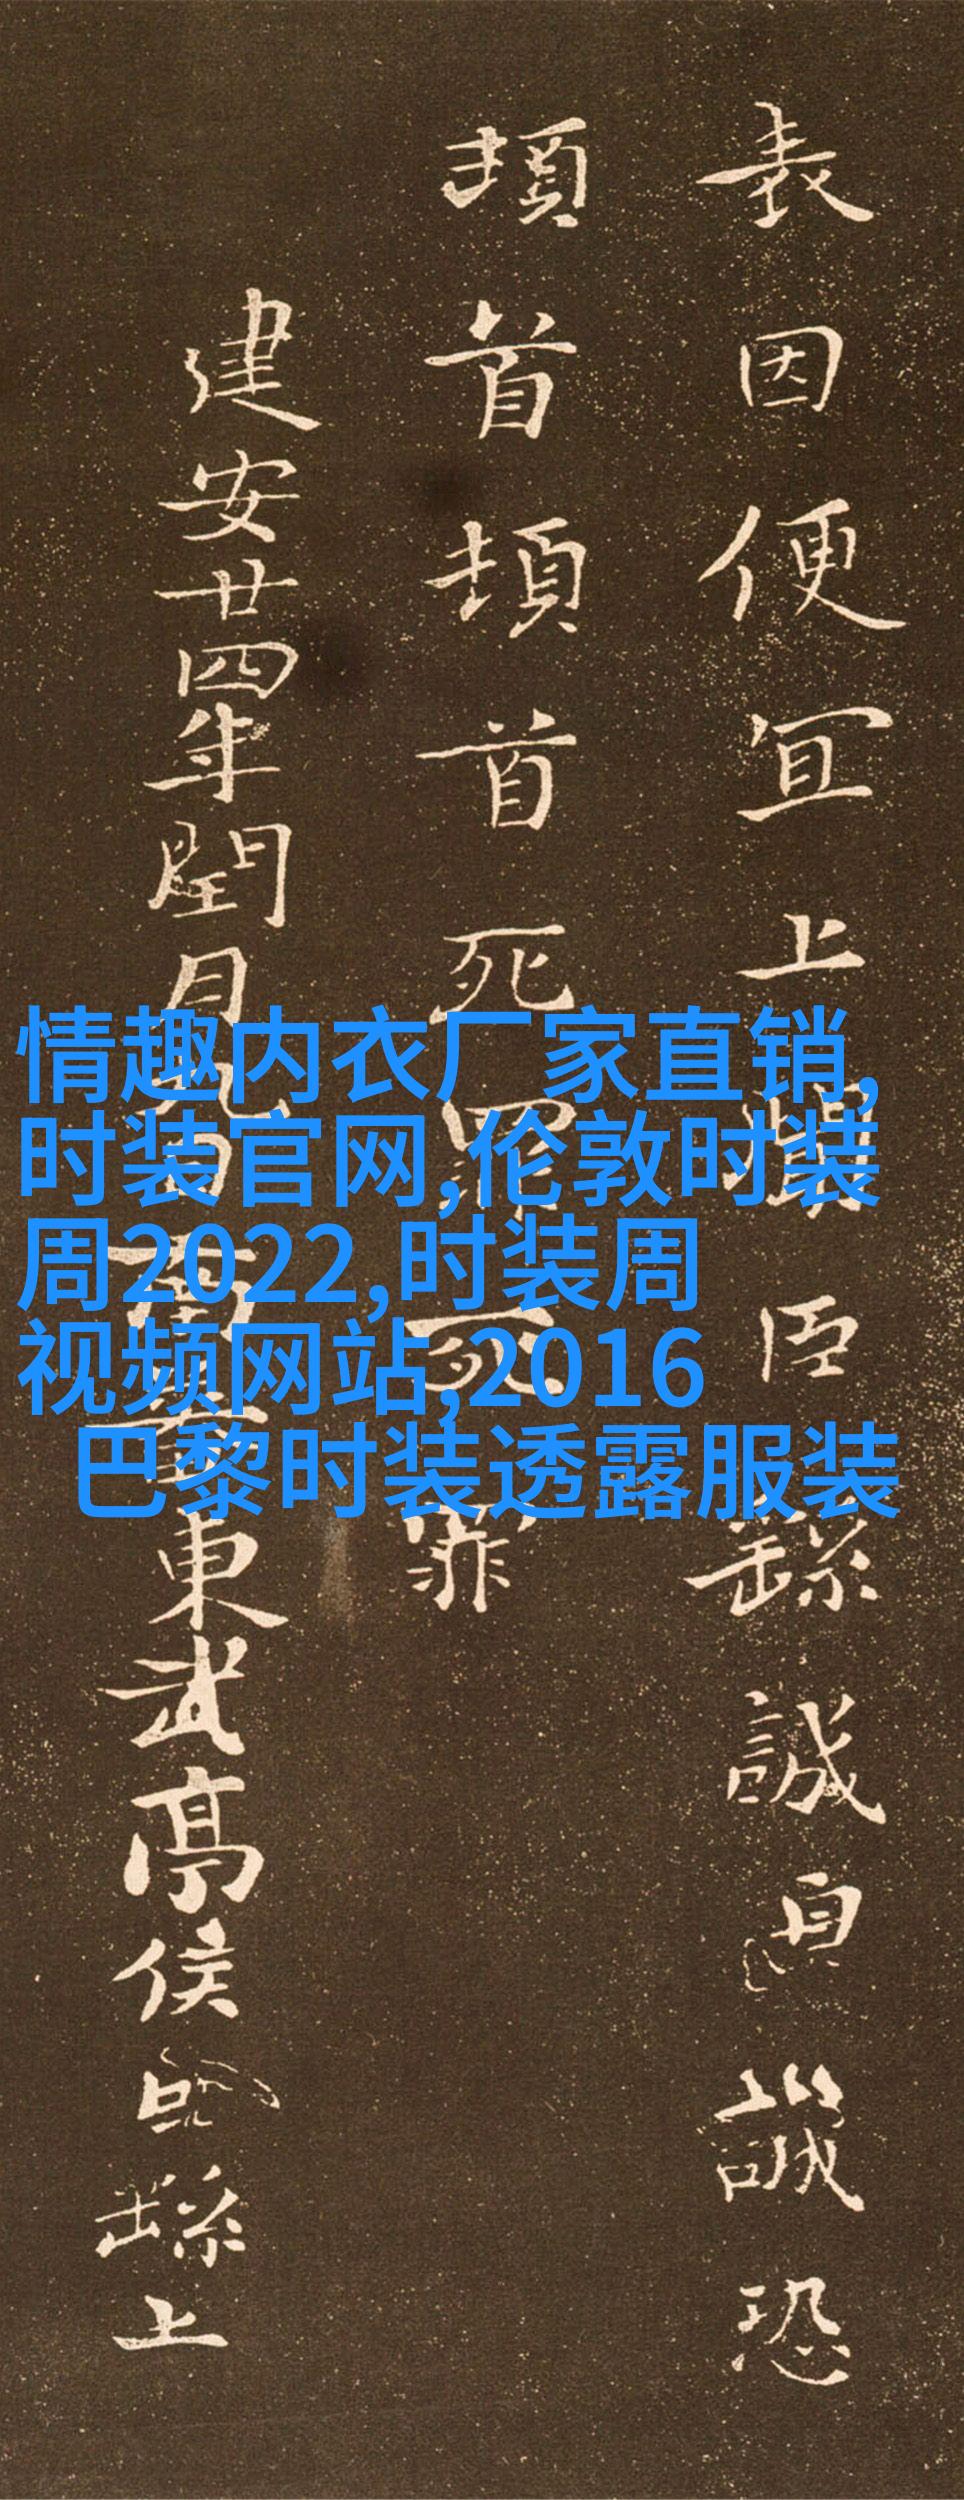 表因便宜上臣繇誠惶誠恐
頓首頓首死罪死罪
建安廿四年閏月九日南蕃東武亭侯臣繇上
情趣内衣厂家直销,
时装官网,伦敦时装
周2022,时装周
视频网站,2016
巴黎时装透露服装